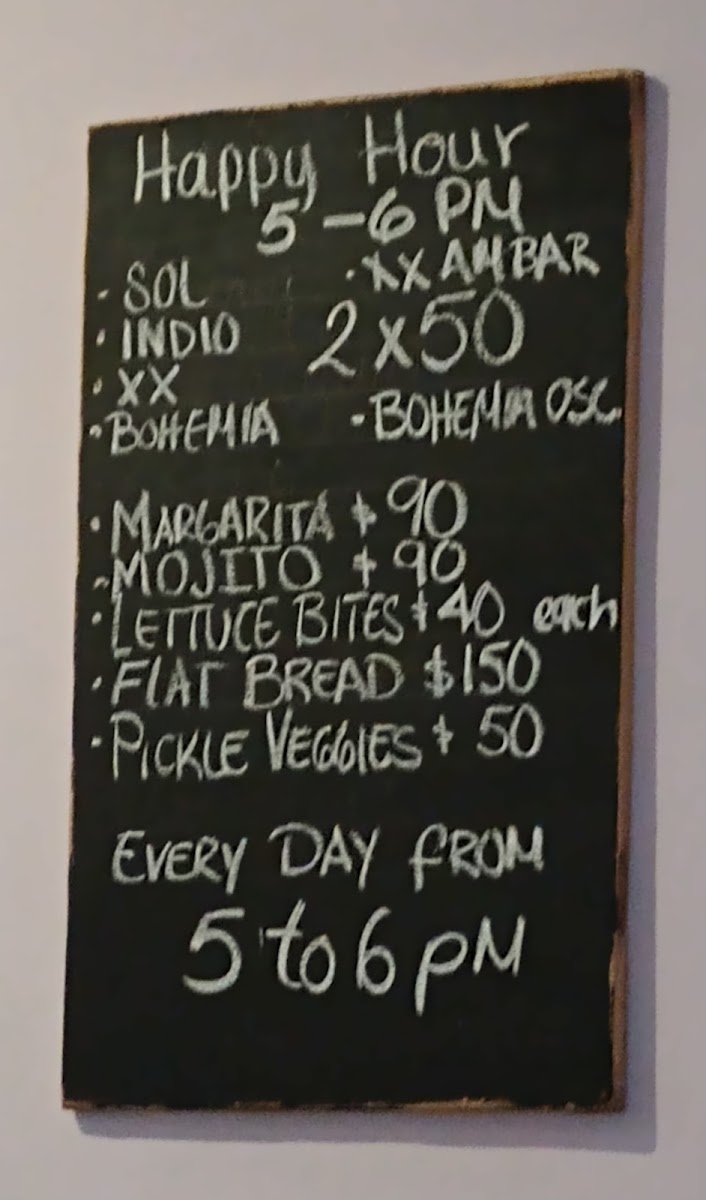 Happy Hour
5-6 PM
· SOL
· XX AMBAR
· INDIO
2x50
· XX
· BOHEMIA
- BOHEMIA OSC.
· MARGARITA $ 90
- MOJITO $ 90
· LETTUCE BITES $ 40 each
· FLAT BREAD $150
· PICKLE VEGGIES $ 50
EVERY DAY FROM
5 to 6 pM